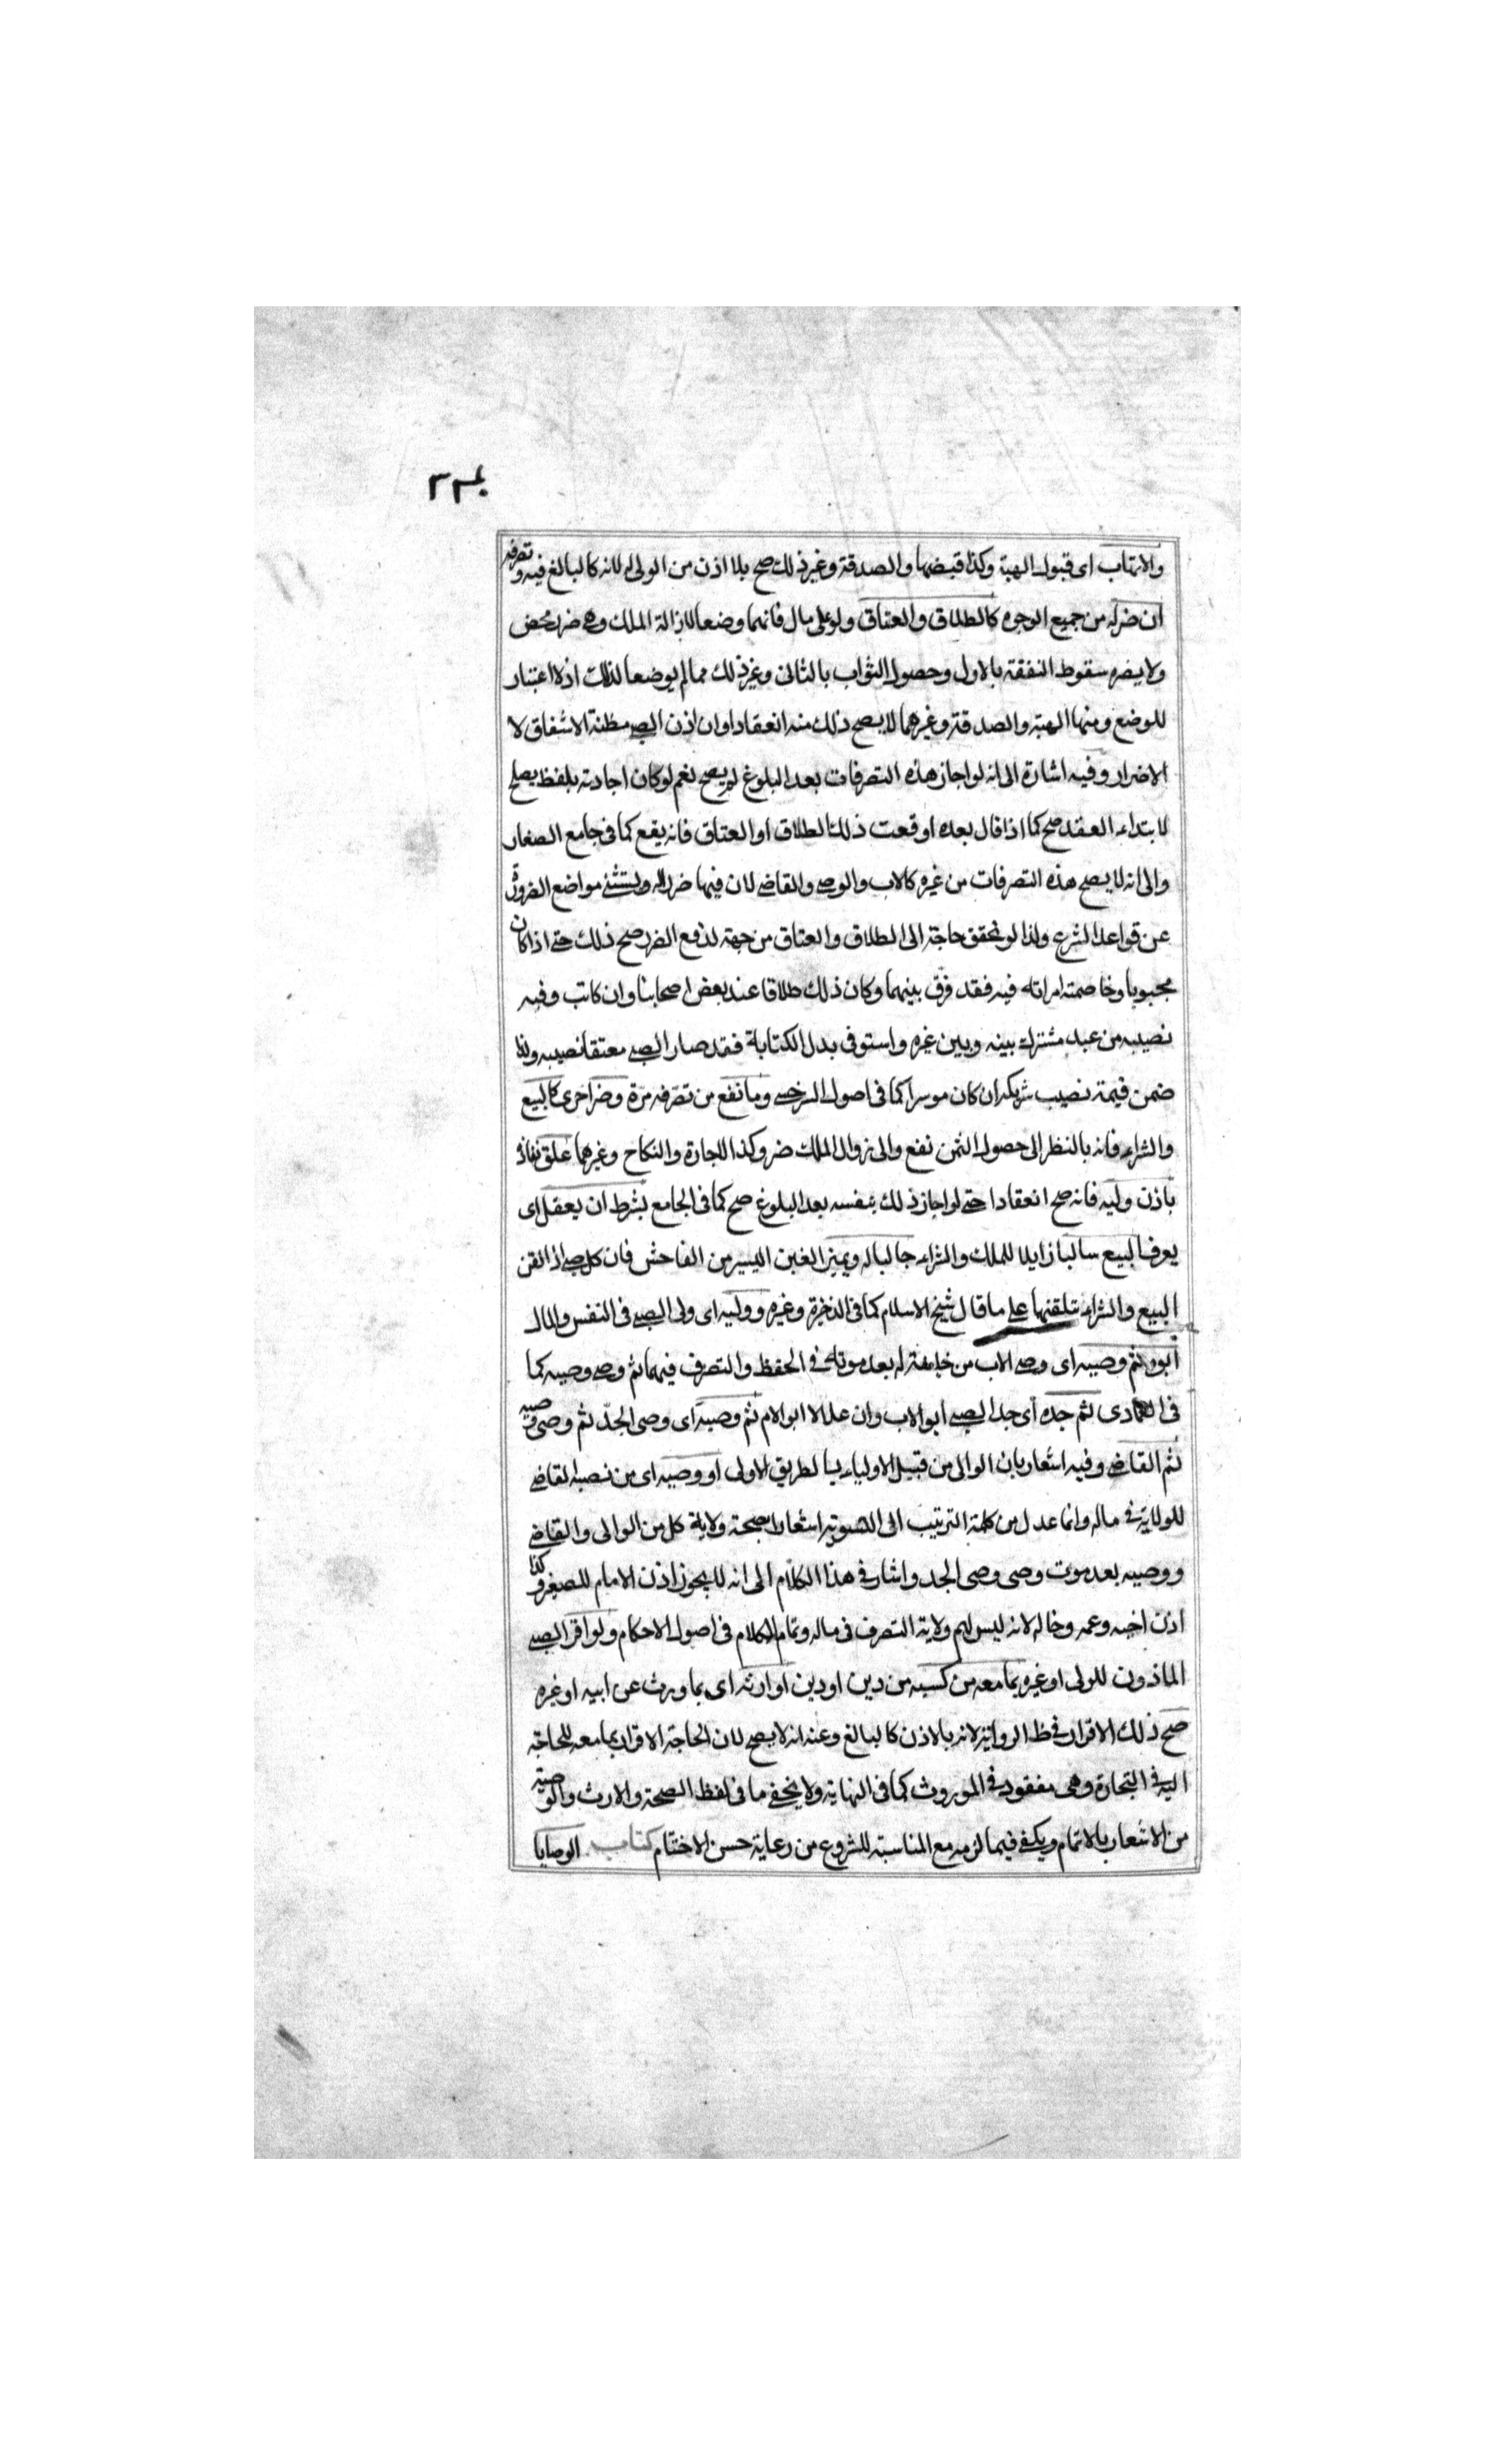 والاتهاب اى قبول الهبة وكذا قبضها والصدقة وغير ذلك صح بلا اذن من الولى له لانه كالبالغ فيه وتصرفه
ان ضر له من جميع الوجوه كالطلاق والعتاق ولو على مال فانهما وضعا لازالة الملك وهى ضرر محض
ولا يضره سقوط النفقة بالاول وحصول الثواب بالثانى وغير ذلك مما لم يوضعا لذلك اذ لا اعتبار
للوضع ومنها الهبة والصدقة وغيرهما لا يصح ذلك منه انعقادا وان اذن الصبى مظنة الاشفاق لا
الاضرار وفيه اشارة الى انه لو اجاز هذه التصرفات بعد البلوغ لم يصح نعم لو كان اجازته بلفظ يصلح
لابتداء العقد صح كما اذا قال بعده اوقعت ذلك الطلاق او العتاق فانه يقع كما فى جامع الصغار
والى انه لا يصح هذه التصرفات من غيره كالاب والوصى والقاضى لان فيها ضررا له ويستثنى مواضع الضرورة
عن قواعد الشرع ولذا لو تحقق حاجة الى الطلاق والعتاق من جهة لدفع الضرر صح ذلك حتى اذا كان
مجبوبا وخاصمته امراته فيه فقد فرق بينهما وكان ذلك طلاقا عند بعض اصحابنا وان كاتب وفيه
نصيبه من عبد مشترك بينه وبين غيره واستوفى بدل الكتابة فقد صار الصبى معتقا نصيبه ولذا
ضمن قيمة نصيب شريكه ان كان موسرا كما فى اصول السرخسى وما نفع من تصرفه مرة وضر اخرى كالبيع
والشراء فانه بالنظر الى حصول الثمن نفع والى زوال الملك ضر وكذا الاجارة والنكاح وغيرهما علق نفاذه
باذن وليه فانه صح انعقادا حتى لو اجاز ذلك بنفسه بعد البلوغ صح كما فى الجامع بشرط ان يعقل اى
يعرف البيع سالبا زايلا للملك والشراء جالبا له ويميز الغبن اليسير من الفاحش فان كل صبى اذا لقن
البيع والشراء تلقنها على ما قال شيخ الاسلام كما فى الذخيرة وغيره ووليه اى ولى الصبى فى النفس والمال
ابوه ثم وصيه اى وصى الاب من خليفة له بعد موته فى الحفظ والتصرف فيهما ثم وصى وصيه كما
فى العمادى ثم جده اى جد الصبى ابو الاب وان علا لا ابو الام ثم وصيه اى وصى الجد ثم وصى وصيه
ثم القاضى وفيه اشعار بان الوالى من قبيل الاولياء بالطريق الاولى او وصيه اى من نصبه القاضى
للولاية فى ماله وانما عدل من كلمة الترتيب الى التسوية اشعارا بصحة ولاية كل من الوالى والقاضى
ووصيه بعد موت وصى وصى الجد واشار فى هذا الكلام الى انه لا يجوز اذن الامام للصغير وكذا
اذن اخيه وعمه وخاله لانه ليس لهم ولاية التصرف فى ماله وتمام الكلام فى اصول الاحكام ولو اقر الصبى
الماذون للولى او غيره بما معه من كسبه من دين او دين او ارثه اى بما ورث عن ابيه او غيره
صح ذلك الاقرار فى ظ الرواية لانه بالاذن كالبالغ وعنه انه لا يصح لان الحاجة الاقرار بما معه للحاجة
اليه فى التجارة وهى مفقود فى الموروث كما فى النهاية ولا يخفى ما فى لفظ الصحة والارث والوصية
من الاشعار بالاتمام ويكفى فيما لزمه مع المناسبة للشروع من رعاية حسن الاختتام كتاب الوصايا